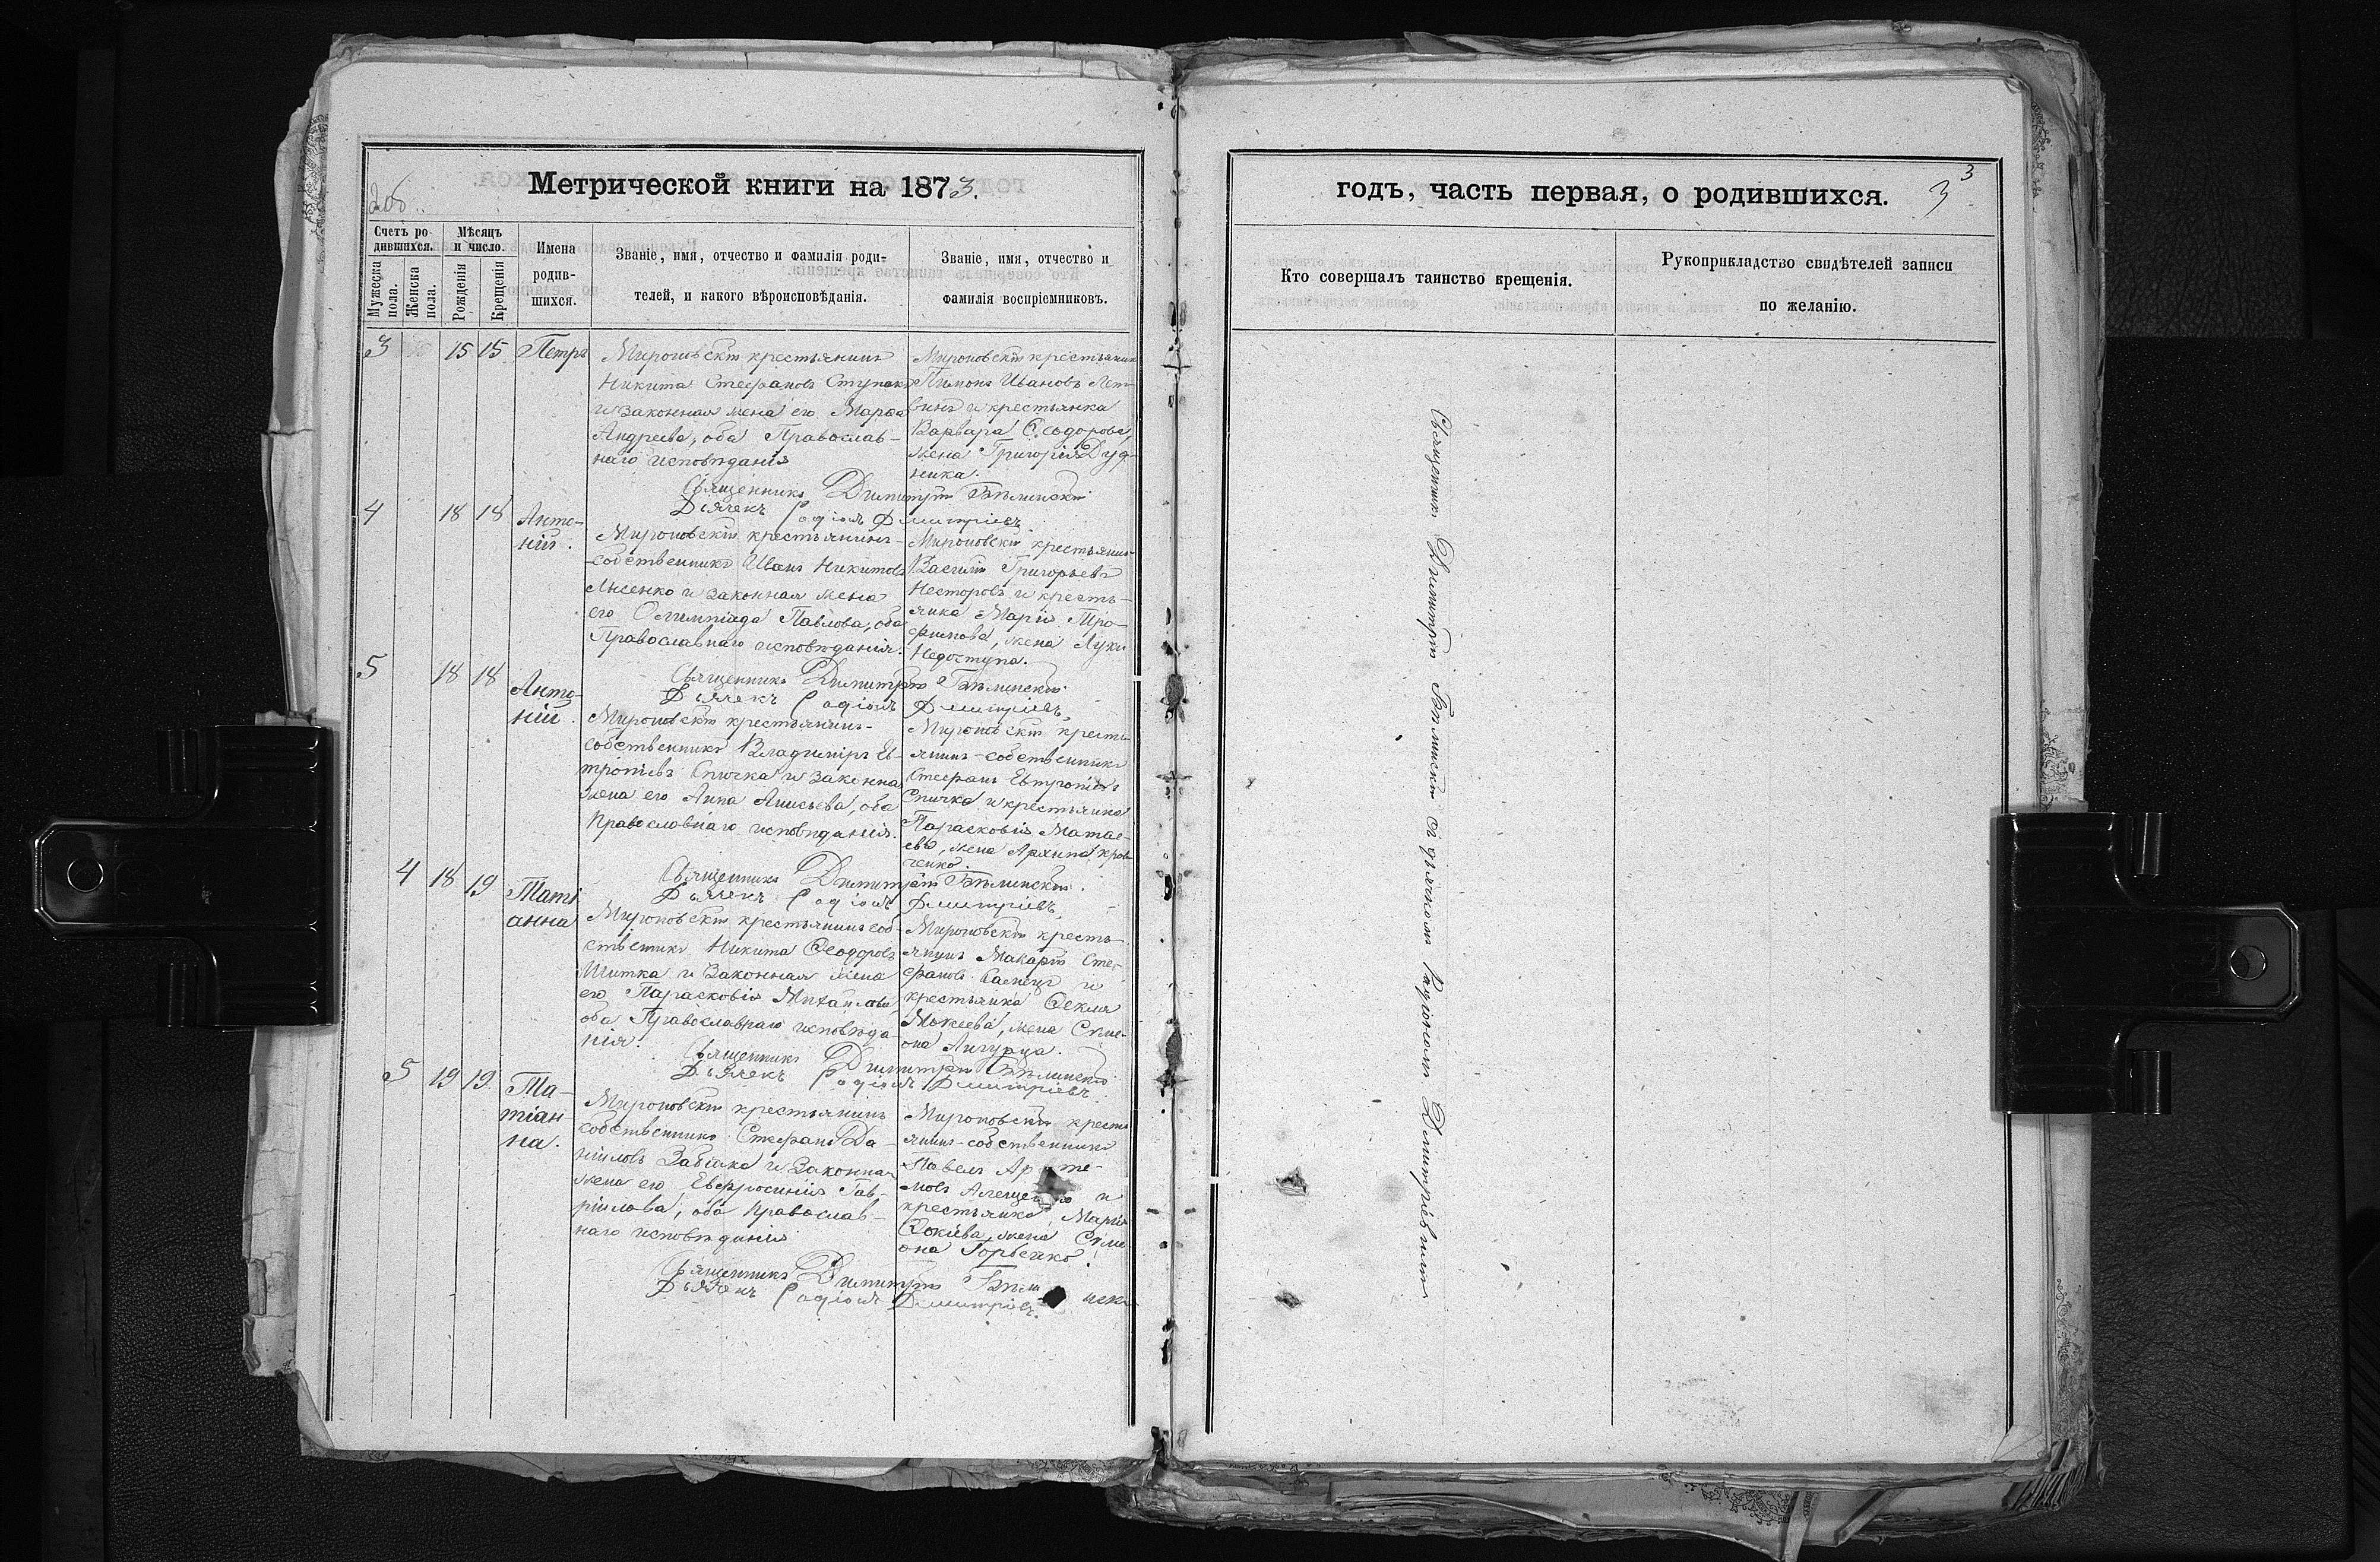 Метрической книги на 1873.
Счетъ ро-
дившихся.
Мужеска
пола.
Женска
пола.
Мѣсяцъ
и число.
Рожденія
Крещенія
Имена
родив-
шихся.
Званіе, имя, отчество и фамилія роди-
телей, и какого вѣроисповѣданія.
Званіе, имя, отчество и
фамилія воспріемниковъ.
3 15 15 Петръ
Мироновскій крестьянинъ
Никита Стефановъ Ступакъ
и законная жена его Марѳа
Андреева, оба Православ-
наго исповѣданія
Мироновскій крестьянинъ
Пимонъ Ивановъ Лит-
винъ и крестьянка
Варвара Ѳеодорова,
жена Григорія Дуд-
ника.
Священникъ Димитрій Бѣлинскій
Дьячекъ Родіонъ Димитріевъ.
4 18 18 Анто-
ній.
Мироновскій крестьянинъ-
собственникъ Иванъ Никитовъ
Лисенко и законная жена
его Олимпіада Павлова, оба
Православнаго исповѣданія.
Мироновскій крестьянинъ
Василій Григорьевъ
Несторовъ и кресть-
янка Марія Тро-
фимова, жена Луки
Недоступа.
Священникъ Димитрій Бѣлинскій
Дьячекъ Родіонъ Димитріевъ.
5 18 18 Анто-
ній.
Мироновскій крестьянинъ-
собственникъ Владиміръ Ев-
тропіевъ Спичка и законная
жена его Анна Анисьева, оба
Православнаго исповѣданія.
Мироновскій кресть-
янинъ-собственникъ
Стефанъ Евтропіевъ
Спичка и крестьянка
Параскевія Матѳе-
ева, жена Архипа Крав-
ченко.
Священникъ Димитрій Бѣлинскій.
Дьячекъ Родіонъ Димитріевъ.
4 18 19 Таті
анна
Мироновскій крестьянинъ соб-
ственникъ Никита Ѳеодоровъ
Шитка и законная жена
его Параскевія Михаилова,
оба Православнаго исповѣда-
нія.
Мироновскій кресть-
янинъ Макарій Сте-
фановъ и
крестьянка Ѳекла
Мокеева, жена Симе-
она
Священникъ Димитрій Бѣлинскій
Дьячекъ Родіонъ Димитріевъ.
5 19 19 Та-
тіан
на.
Мироновскій крестьянинъ
собственникъ Стефанъ Да-
ніиловъ и законная
жена его Евфросинія Гав-
ріилова, оба Православ-
наго исповѣданія
Мироновскій кресть
янинъ-собственникъ
Павелъ Арте-
мовъ и
крестьянка Марія
жена Симе
она Горбенко.
Священникъ Димитрій Бѣлинскій
Дьячекъ Родіонъ Димитріевъ.
годъ, часть первая, о родившихся.
3
3
Кто совершалъ таинство крещенія.
Рукоприкладство свидѣтелей записи
по желанію.
Священникъ Димитрій Бѣлинскій съ дьячкомъ Родіономъ Димитріевымъ